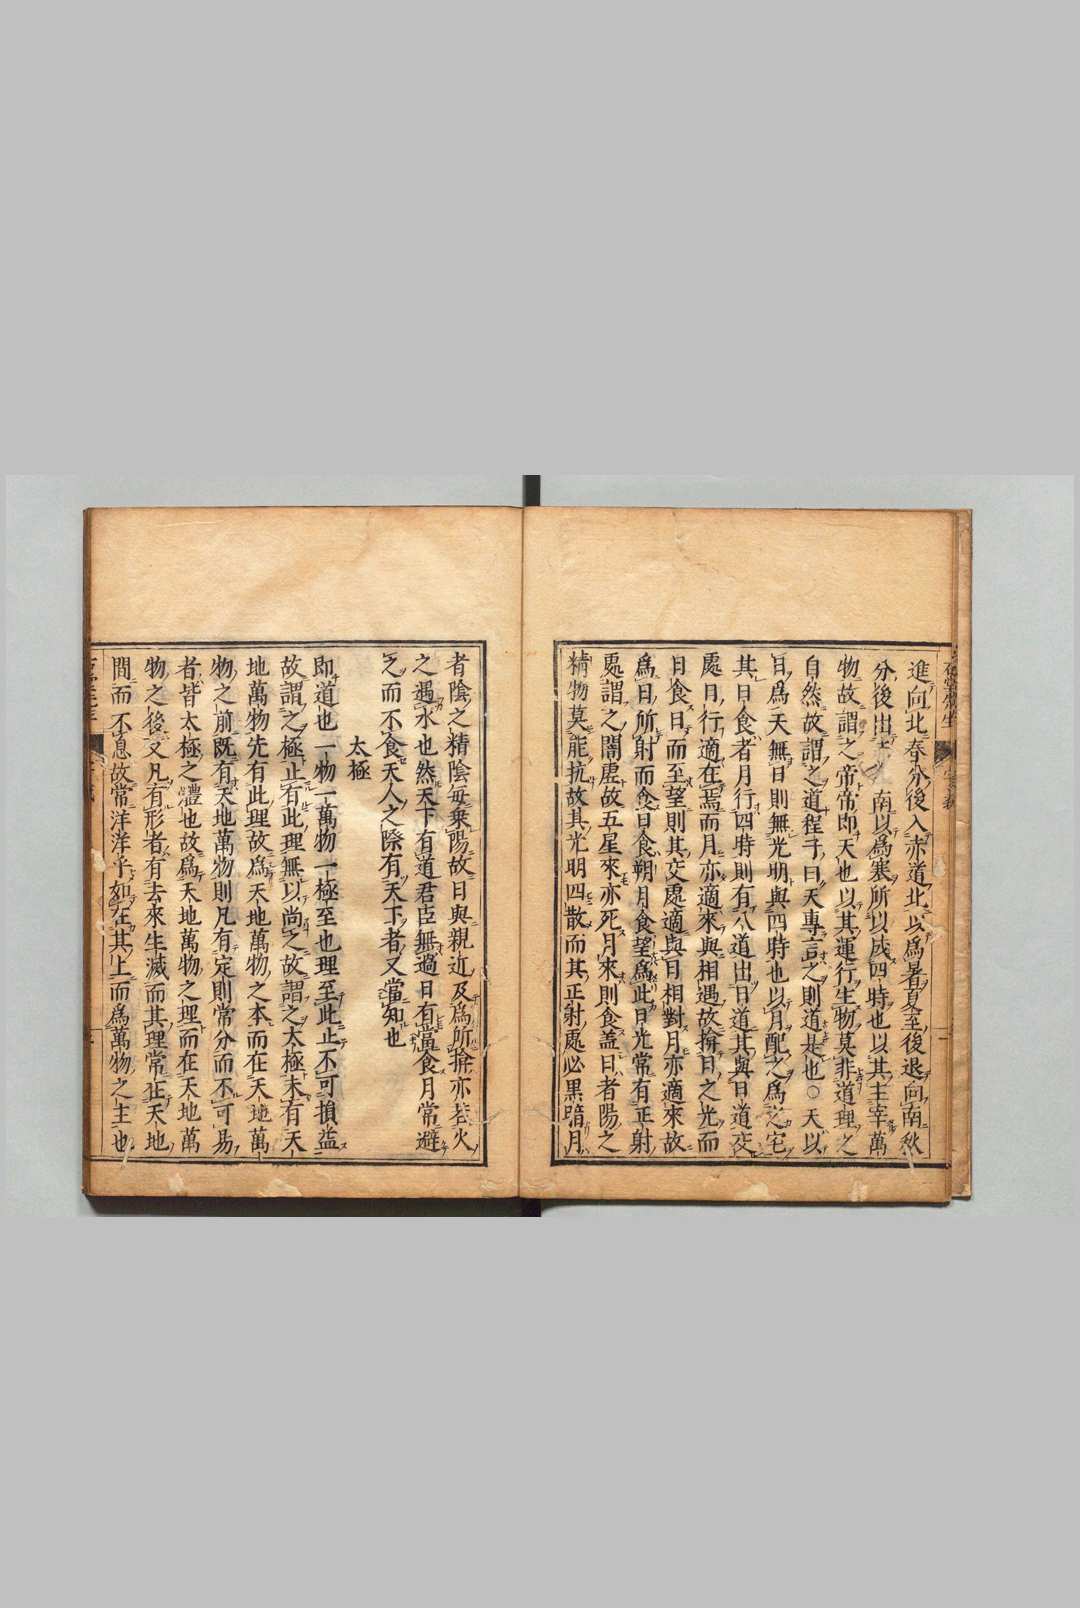 進向北春分後入赤道北以爲暑夏至後退向南秋
分後出 南以爲寒所以成四時也以其主宰萬
物故謂之帝帝即天也以其運行生物莫非道理之
自然故謂之道程子曰天專言之則道是也○天以
日爲天無日則無光明與四時也以月配之爲之宅
其日食者月行四時則有八道出日道其與日道交
處日行適在焉而月亦適來與相遇故揜日之光而
日食日而至望則其交處適與日相對月亦適來故
爲日所射而食日食朔月食望爲此日光常有正射
處謂之闇虛故五星來亦死月來則食蓋日者陽之
精物莫能抗故其光明四散而其正射處必黒暗月
者陰之精陰每乗陽故日與親近及爲所揜亦若火
之遇水也然天下有道君臣無過日有當食月常避
之而不食天人之際有天下者又當知也
太極
即道也一物一萬物一極至也理至此止不可損益
故謂之極止有此理無以尚之故謂之太極未有天
地萬物先有此理故爲天地萬物之本而在天地萬
物之前既有天地萬物則凡有定則常分而不可易
者皆太極之體也故爲天地萬物之理而在天地萬
物之後又凡有形者有去來生滅而其理常在天地
間而不息故常洋洋乎如在其上而爲萬物之主也